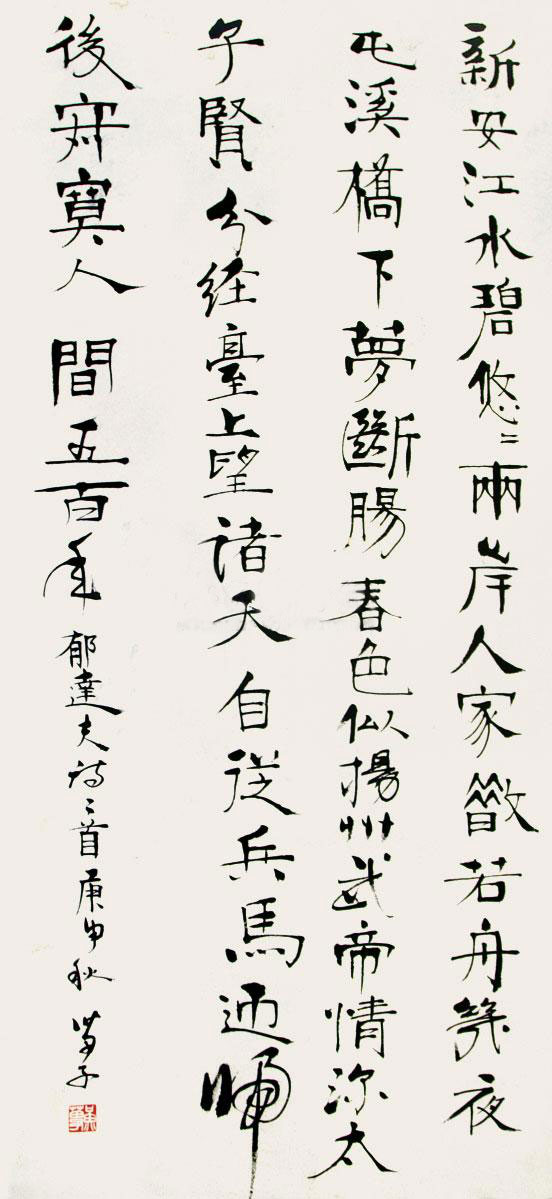 新安江水碧悠〻兩岸人家散若舟幾夜
屯溪橋下夢斷腸春色似揚州武帝情深太
子賢分经臺上望諸天自從兵馬迎歸
後寂寞人間五百年郁達夫詩二首庚申秋